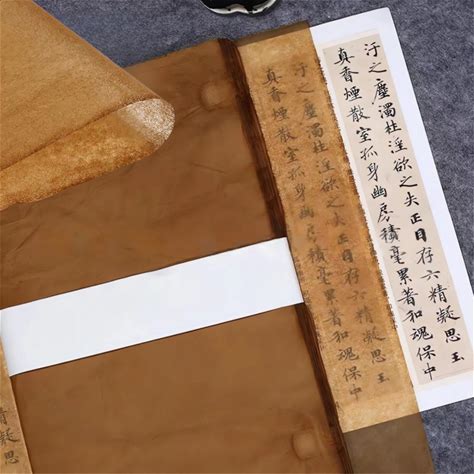 汙之塵濁杜淫欲之失正目存六精凝思玉
真香煙散室孤身幽房積毫累著和魂保中
汙之塵濁杜淫欲之失正目存六精凝思玉
真香煙散室孤身幽房積毫累著和魂保中
精凝思